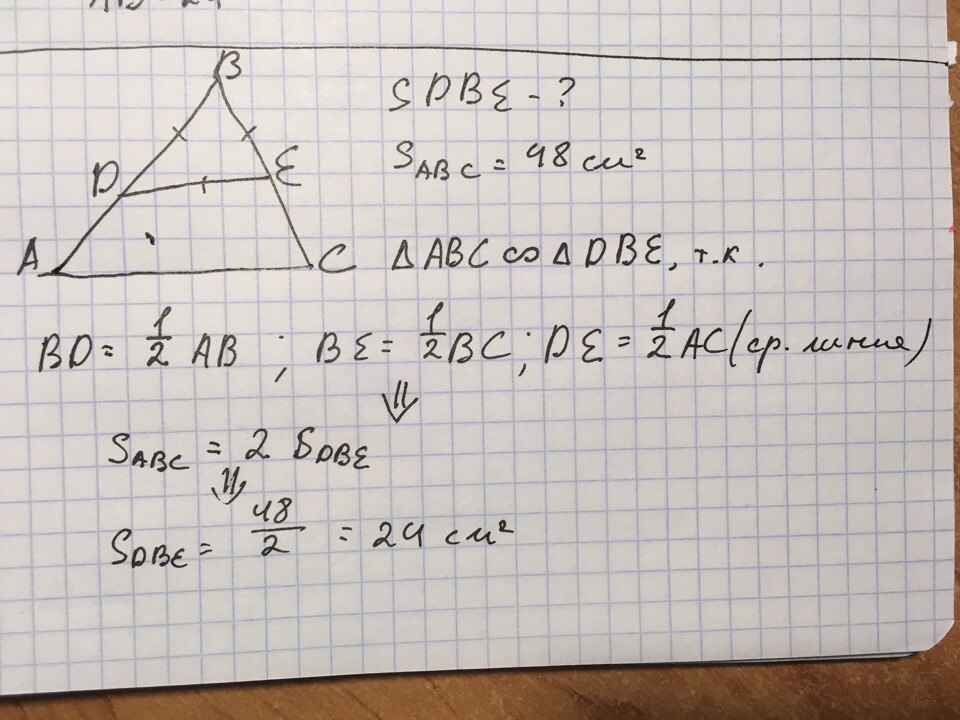 B
D
E
A
C
S DBE - ?
S ABC = 48 см²
Δ ABC ∾ Δ DBE, т.к.
BD = 1/2 AB ; BE = 1/2 BC ; DE = 1/2 AC (ср. линия)
⇓
S ABC = 2 S DBE
⇓
S DBE = 48/2 = 24 см²